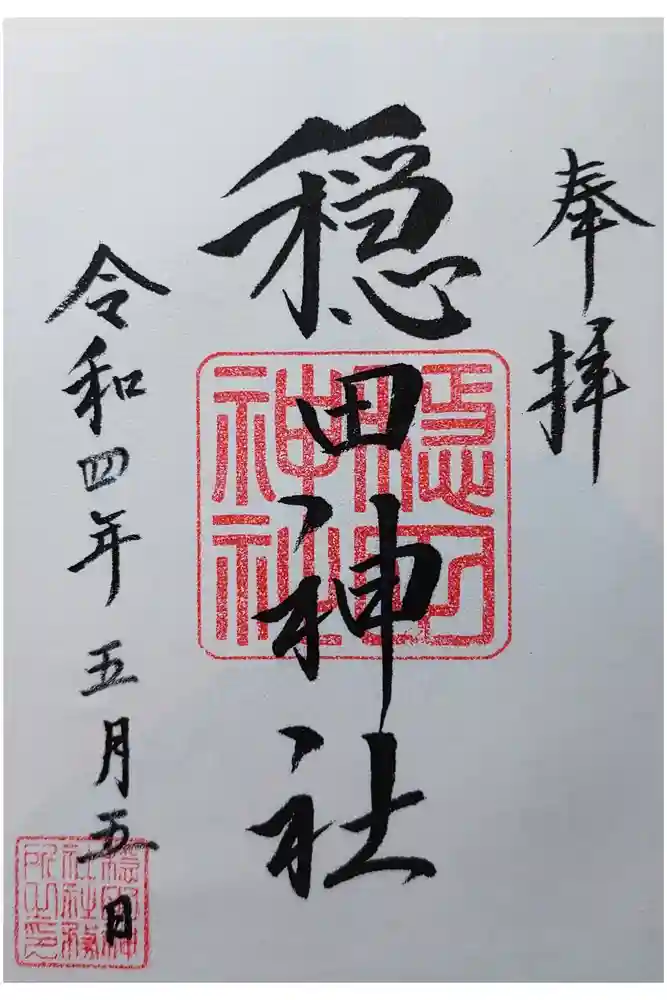 奉拝
穏田神社
穏田神社
令和四年 五月五日
穏田神社社務所之印